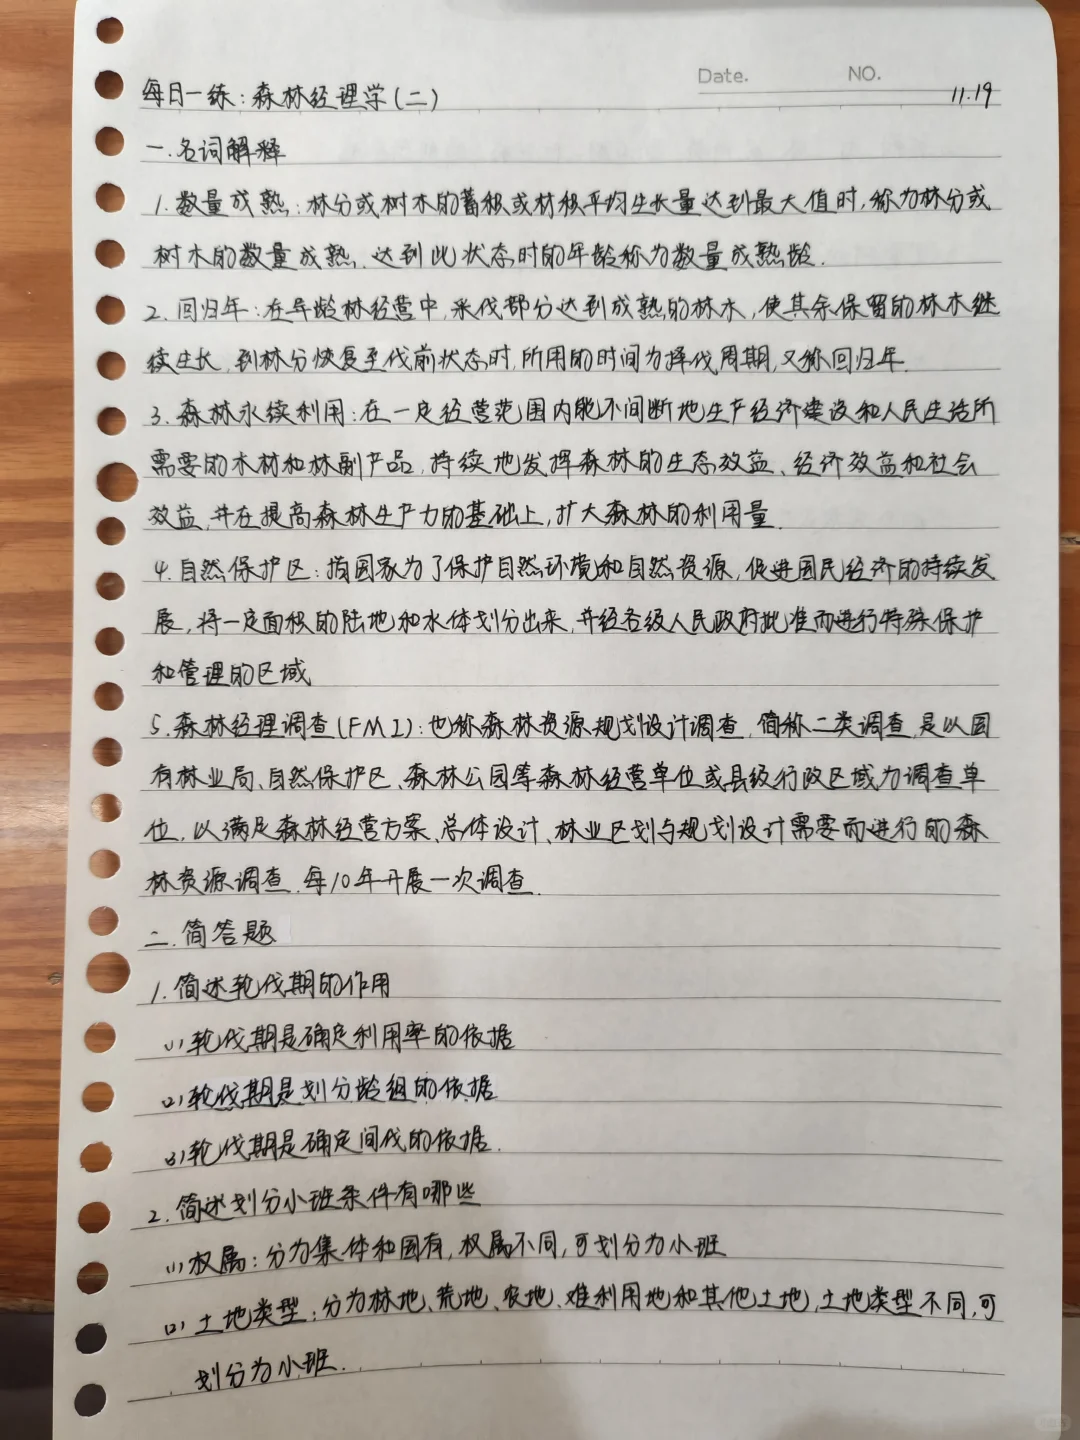 Date.
NO.
每日一练:森林经理学(二)
11.19
一.名词解释
1.数量成熟:林分或树木的蓄积或材积平均生长量达到最大值时,称为林分或
树木的数量成熟.达到此状态时的年龄称为数量成熟龄.
2.回归年:在异龄林经营中,采伐部分达到成熟的林木,使其余保留的林木继
续生长,到林分恢复至伐前状态时,所用的时间为择伐周期,又称回归年.
3.森林永续利用:在一定经营范围内能不间断地生产经济建设和人民生活所
需要的木材和林副产品,持续地发挥森林的生态效益、经济效益和社会
效益,并在提高森林生产力的基础上,扩大森林的利用量.
4.自然保护区:指国家为了保护自然环境和自然资源,促进国民经济的持续发
展,将一定面积的陆地和水体划分出来,并经各级人民政府批准而进行特殊保护
和管理的区域
5.森林经理调查(FMI):也称森林资源规划设计调查,简称二类调查,是以国
有林业局、自然保护区、森林公园等森林经营单位或县级行政区域为调查单
位,以满足森林经营方案、总体设计、林业区划与规划设计需要而进行的森
林资源调查.每10年开展一次调查.
二.简答题
1.简述轮伐期的作用
(1)轮伐期是确定利用率的依据
(2)轮伐期是划分龄组的依据
(3)轮伐期是确定间伐的依据.
2.简述划分小班条件有哪些
(1)权属:分为集体和国有,权属不同,可划分为小班
(2)土地类型:分为林地、荒地、农地、难利用地和其他土地,土地类型不同,可
划分为小班.